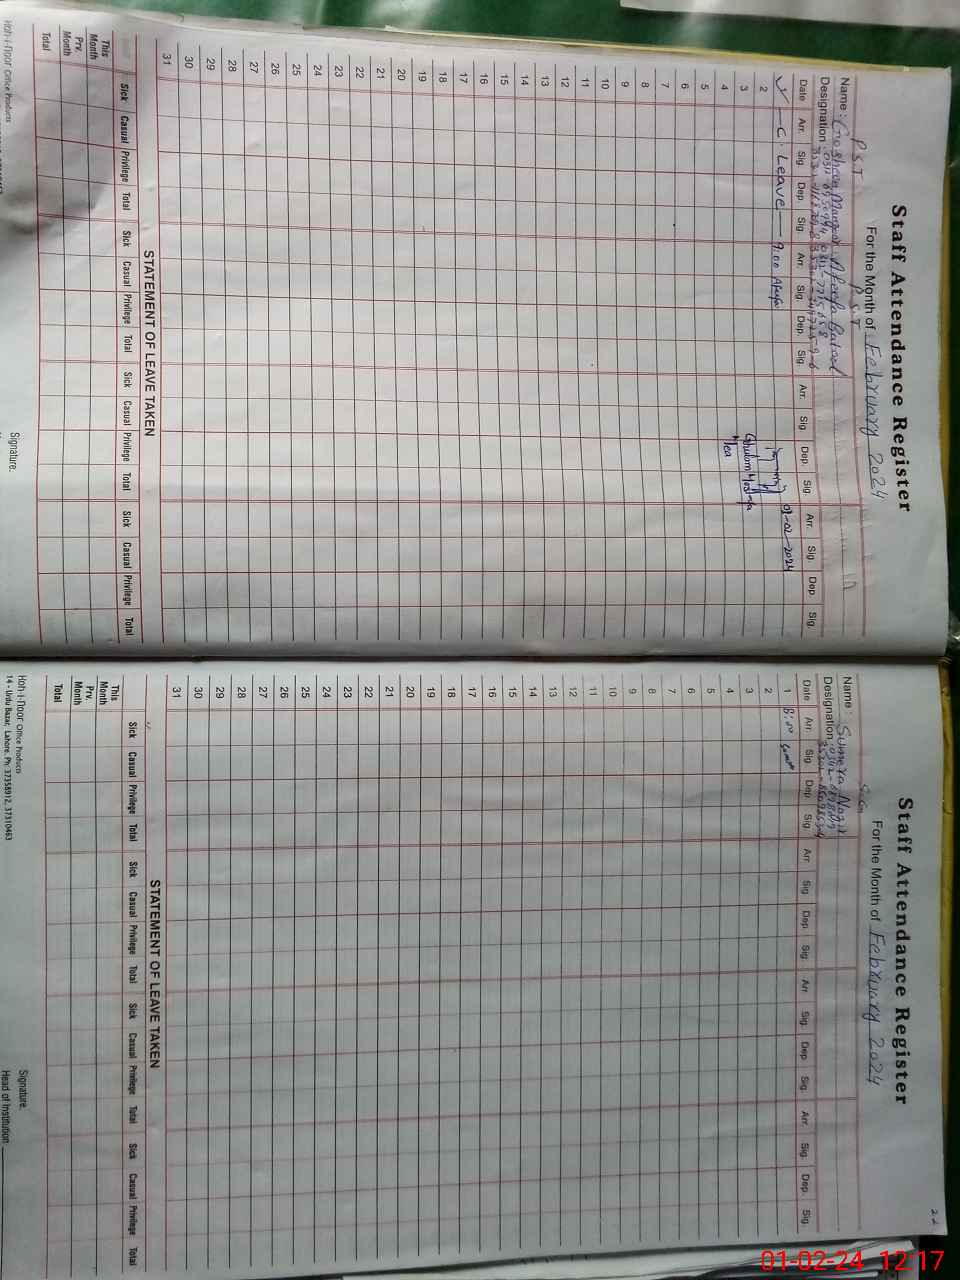 Staff Attendance Register
For the Month of February 2024
P.S.T P.S.T
Name: Afeefa Batool
Designation
Date Arr. Sig. Dep. Sig. Arr. Sig. Dep. Sig. Arr. Sig. Dep. Sig. Arr. Sig. Dep. Sig.
C. Leave 9:00 Afeefa 01-02-2024
2
3 Ghulam Mustafa
4 Mea
5
6
7
8
9
10
11
12
13
14
15
16
17
18
19
20
21
22
23
24
25
26
27
28
29
30
31
STATEMENT OF LEAVE TAKEN
Sick Casual Privilege Total Sick Casual Privilege Total Sick Casual Privilege Total Sick Casual Privilege Total
This Month
Prv. Month
Total
Signature.
Roh-i-Noor Office Products
22
Staff Attendance Register
For the Month of February 2024
Name: Sumera Nazir
Designation
Date Arr. Sig. Dep. Sig. Arr. Sig. Dep. Sig. Arr. Sig. Dep. Sig. Arr. Sig. Dep. Sig.
1 8:00
2
3
4
5
6
7
8
9
10
11
12
13
14
15
16
17
18
19
20
21
22
23
24
25
26
27
28
29
30
31
STATEMENT OF LEAVE TAKEN
Sick Casual Privilege Total Sick Casual Privilege Total Sick Casual Privilege Total Sick Casual Privilege Total
This Month
Prv. Month
Total
Signature.
Head of Institution
Roh-i-Noor Office Products
14 - Urdu Bazar, Lahore. Ph: 37358912, 37310463
01-02-24 12:17